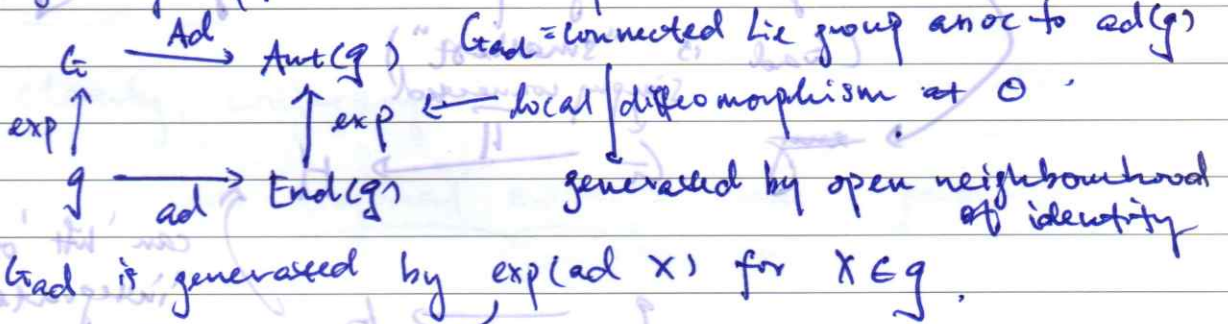 G —Ad→ Aut(g) G_ad = connected Lie group assoc to ad(g)
exp ↑ ↑ exp ← local diffeomorphism at 0
g —ad→ End(g) generated by open neighbourhood
of identity
G_ad is generated by exp(ad X) for X ∈ g.